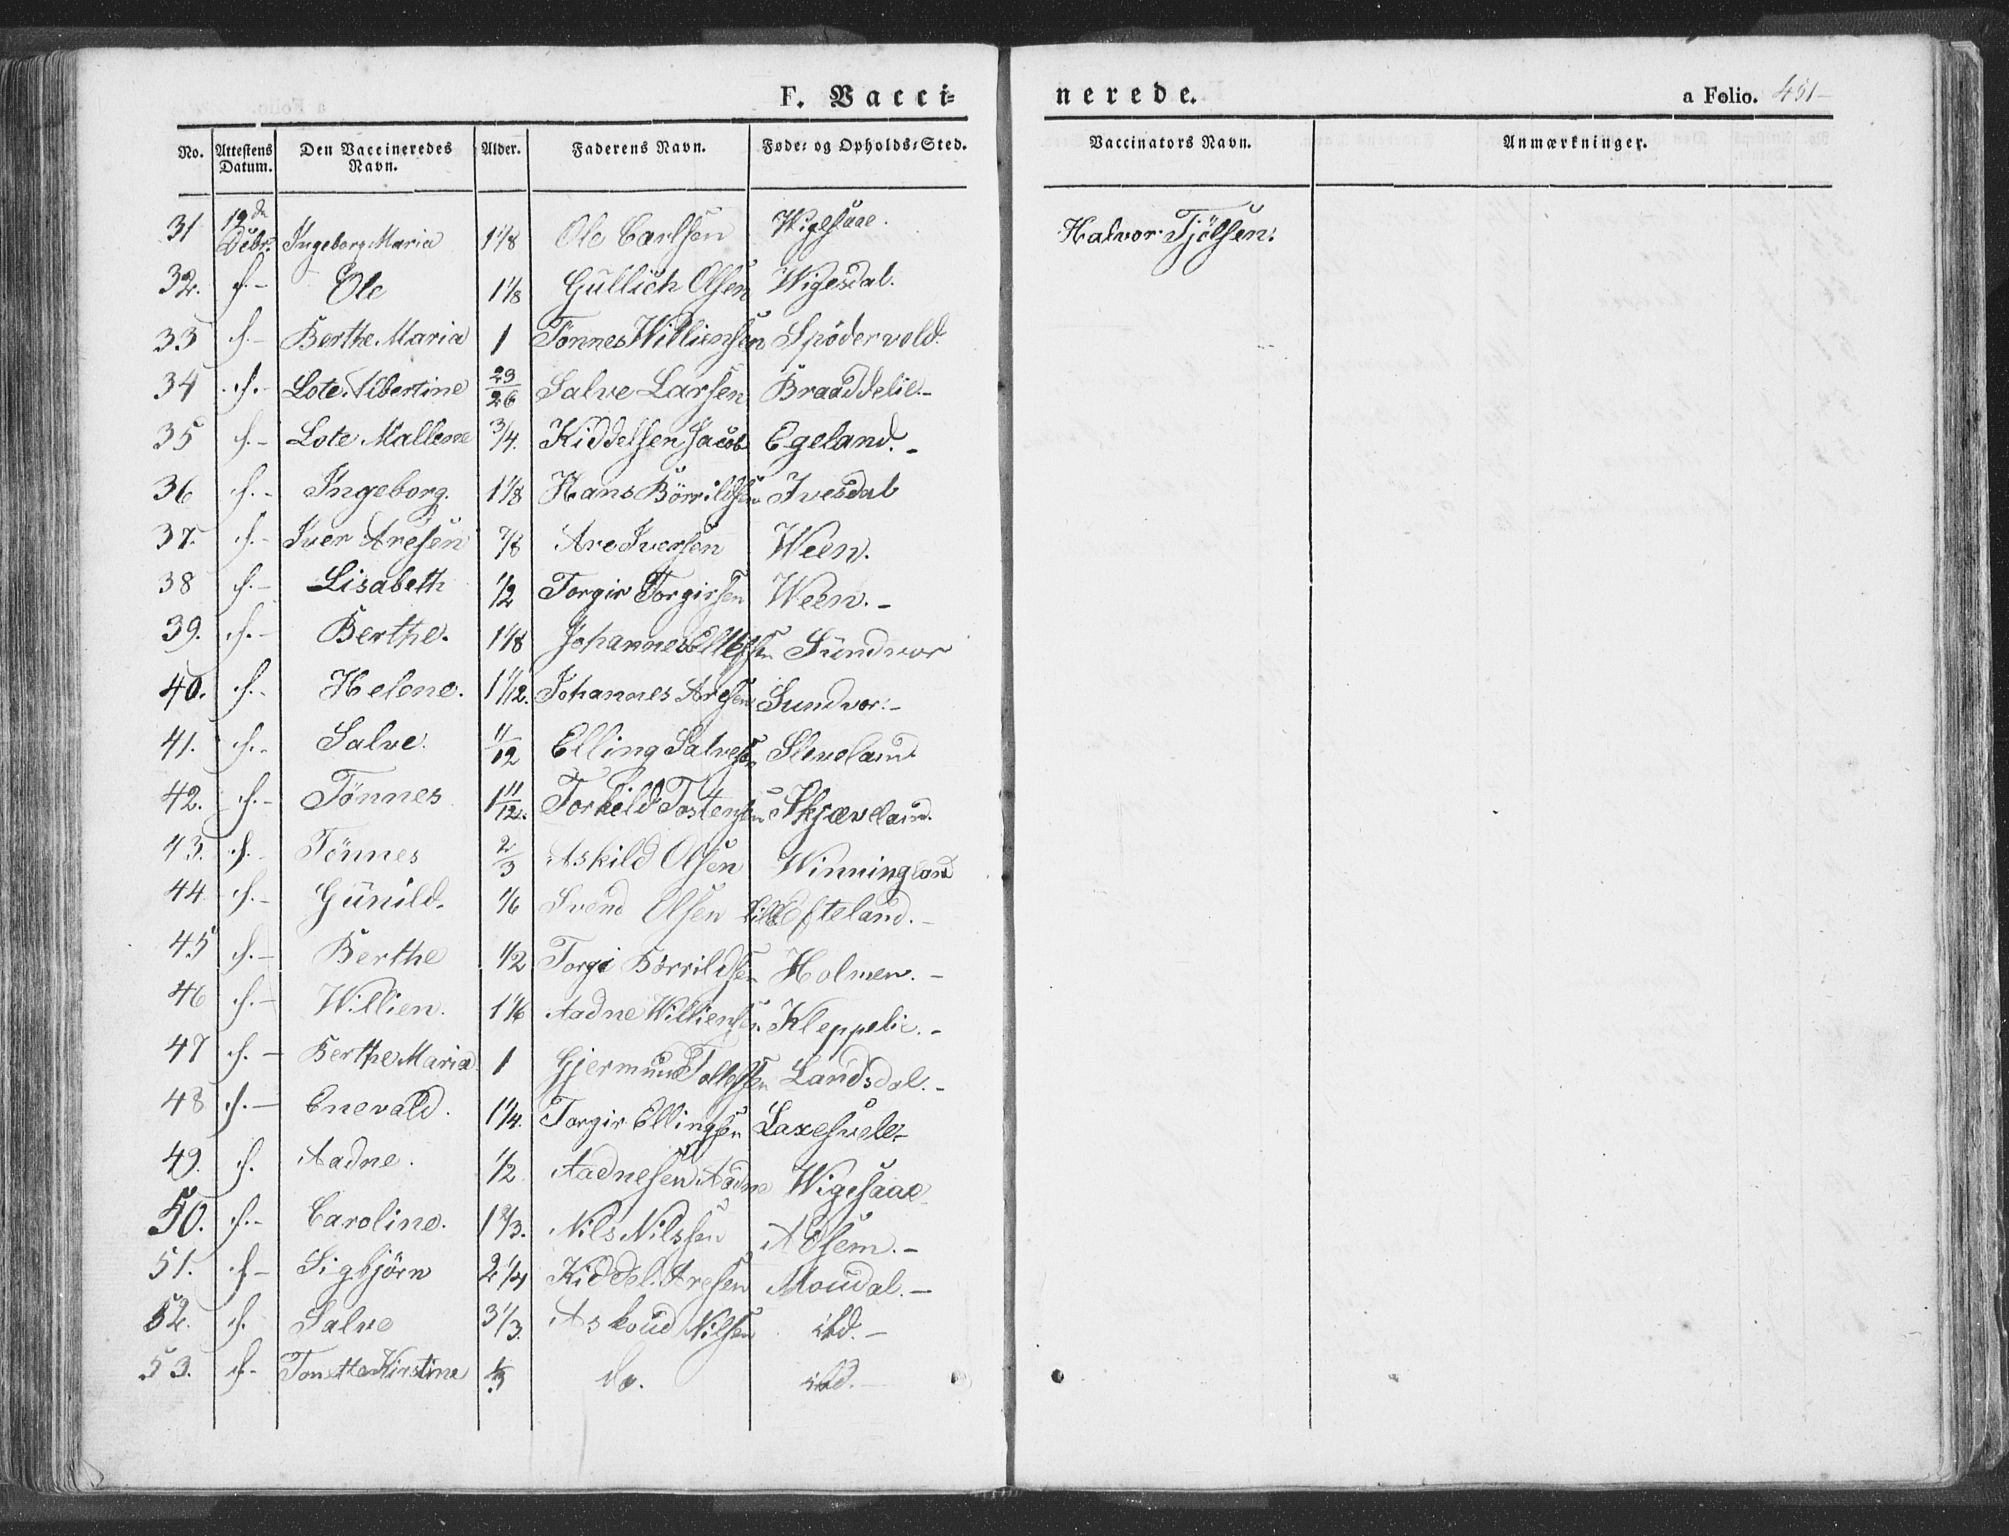 F. Vacci=
nerede.
a Folio. 451
No. Attestens Datum. Den Vaccineredes Navn. Alder. Faderens Navn. Føde= og Opholds=Sted. Vaccinators Navn. Anmærkninger.
31 19de Debr. Ingeborg Maria 1 1/8 Ole Carlsen Wigesaae. Halvor Tjölsen.
32. d.- Ole 1 1/8 Gullich Olsen Wigesdal.
33 d.- Berthe Maria 1 Tønnes Williensen Spødervold.
34 d.- Lote Albertine 23/26 Salve Larsen Braaddelie.-
35 d.- Lote Mallene 3/4. Kiddelsen Jacob Egeland.-
36 d.- Ingeborg. 1 1/8 Hans Börrildsen Ivesdal
37. d.- Iver Aresen 7/8 Are Iversen Ween.
38 d.- Lisabeth 1/2 Torgir Torgirsen Ween.-
39. d.- Berthe. 1 1/8 Johannes Ellefsen Sundvor
40. d.- Helene. 1 1/12. Johannes Aresen Sundvor.-
41. d.- Salve. 11/12 Elling Salvesen Sleveland
42. d.- Tönnes 1 11/12. Torkild Tostensen Skjæveland.
43. d.- Tönnes 2/3 Askild Olsen Winningland
44 d.- Günild. 1/6 Svend Olsen Lille Efteland.-
45 d.- Berthe 1/2 Torgi Börrildsen Holmen.-
46 d.- Willien. 1 1/6 Aadne Williensen Kleppelie.-
47 d.- Berthe Maria 1 Gjermund Tollefsen Landsdal.-
48 d.- Enevald. 1 1/4. Torgir Ellingsen Laxesvele-
49. d. Aadne. 1/2 Aadnesen Aadne Wigesaae
50. d.- Caroline. 1 2/3. Nils Nilssen Adsem.-
51. d- Sigbjörn 2 1/4 Kiddel Aresen Moudal.-
52. d. Salve 3 1/3. Askoud Nilsen ibd.-
53. d- Tonette Kirstine 1/3 do. ibd.-